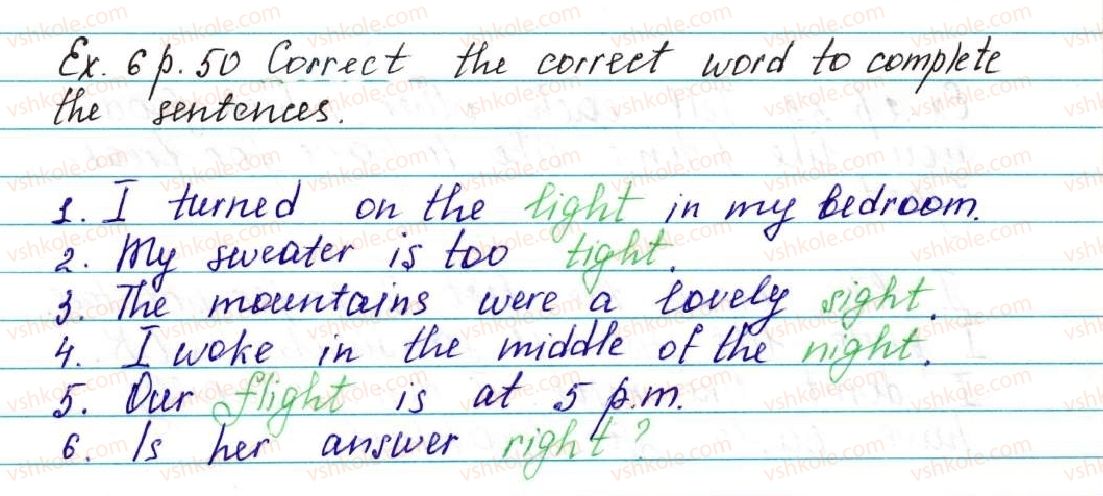 Ex. 6 p. 50 Correct the correct word to complete
the sentences.
1. I turned on the light in my bedroom.
2. My sweater is too tight.
3. The mountains were a lovely sight.
4. I woke in the middle of the night.
5. Our flight is at 5 p.m.
6. Is her answer right?